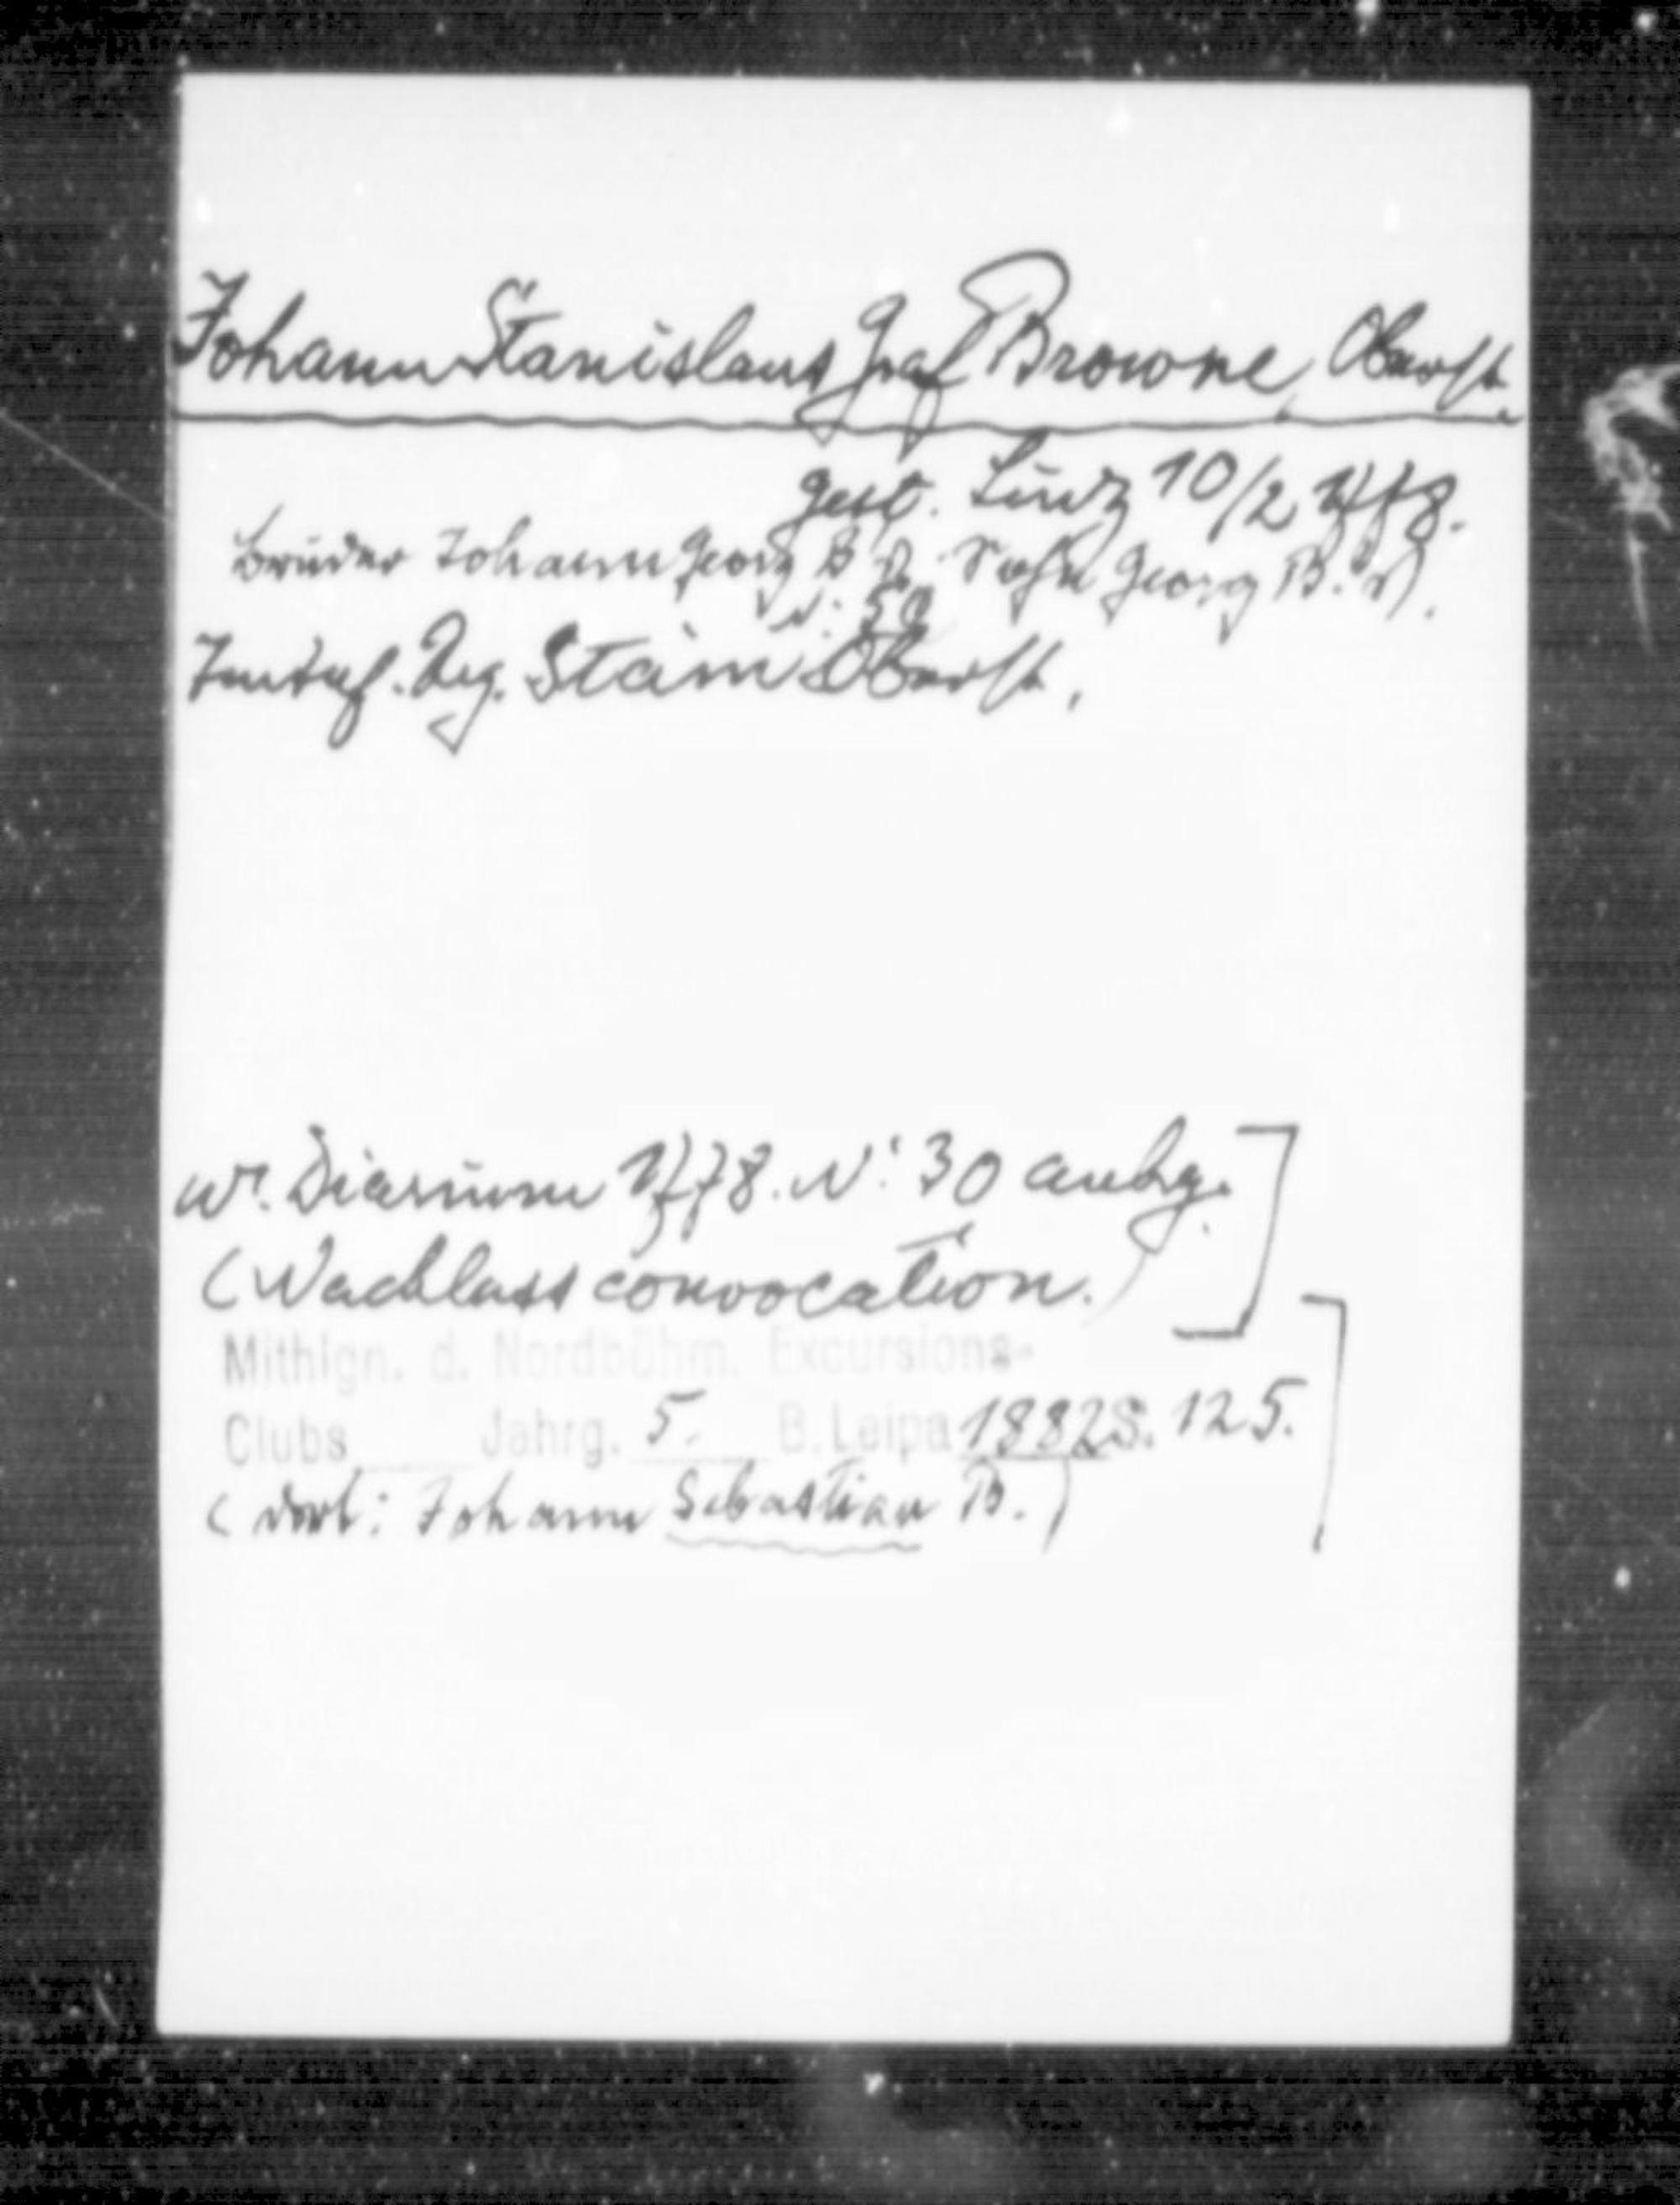 Johann Stanislaus Graf Browne, Oberst.
gest. Linz 10/2 1778.
Bruder Johann Georg B's. Sohn Georg B.'s).
N: 50
Inf. Reg. Stain Oberst,
W. Diarium 1778. N: 30 anhg.
(Nachlass convocation.)
Mithlgn. d. Nordböhm. Excursions-
Clubs Jahrg. 5. B. Leipa 1882 S. 125.
(dort: Johann Sebastian B.)